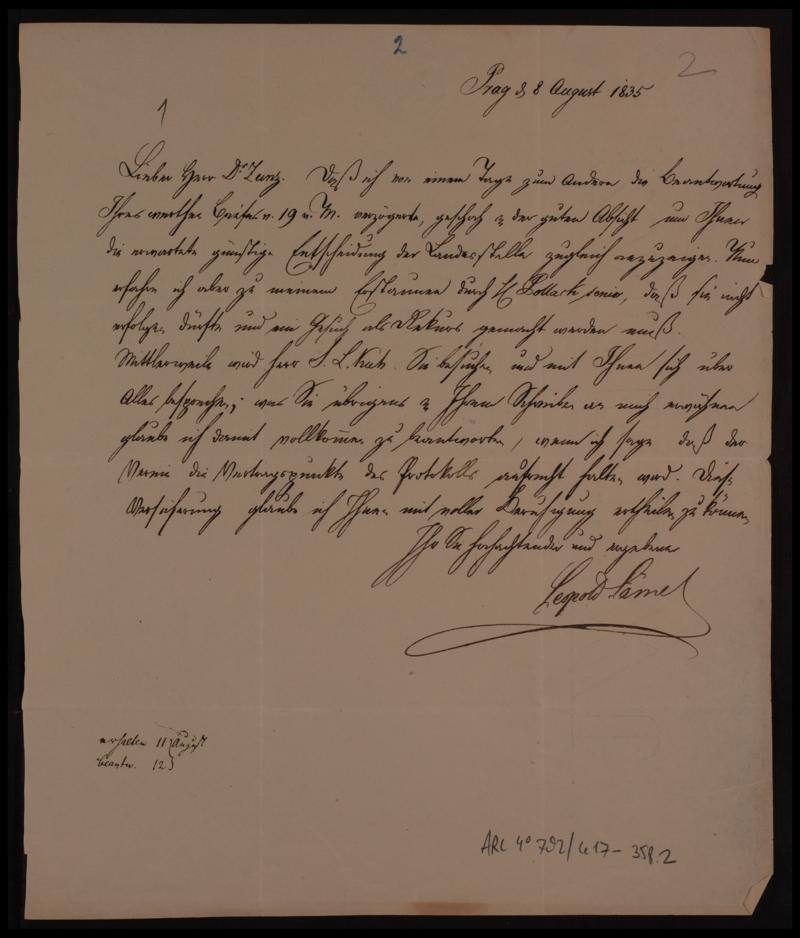 2
2
1
Prag d 8 August 1835
Lieber Herr Dr Zunz. Daß ich von einem Tage zum Andern die Beantwortung
Ihres werthen Briefes v. 19 v. M. verzögerte, geschah in der guten Absicht um Ihnen
die erwartete günstige Entscheidung der Landesstelle zugleich anzuzeigen. Nun
erfahre ich aber zu meinem Erstaunen durch H Pollack senior, daß sie nicht
erfolgen dürfte und ein Gesuch als Rekurs gemacht werden muß.
Mittlerweile wird Herr S. L. Kuh Sie besuchen und mit Ihnen sich über
Alles besprechen; was Sie übrigens in Ihrem Schreiben an mich erwähnen
glaube ich damit vollkommen zu beantworten, wenn ich sage daß der
Verein die Vertragspunkte des Protokolls aufrecht halten wird. Diese
Versicherung glaube ich Ihnen mit voller Beruhigung ertheilen zu können
Ihr Sie hochachtender und ergebener
Leopold Lämel
erhalten 11 August
beantw. 12
ARC 4° 792/ 358.2